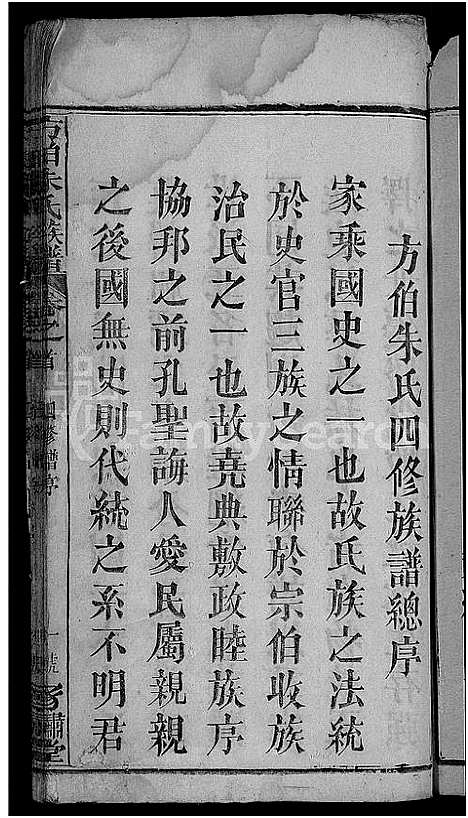 方伯朱氏四修族譜總序
家乘國史之一也故氏族之法統
於史官三族之情聯於宗伯收族
治民之一也故堯典敷政睦族序
協邦之前孔聖誨人愛民屬親親
之後國無史則代統之系不明君
方伯朱氏族譜 卷之首 四修譜序 一號 堂
FamilySearch